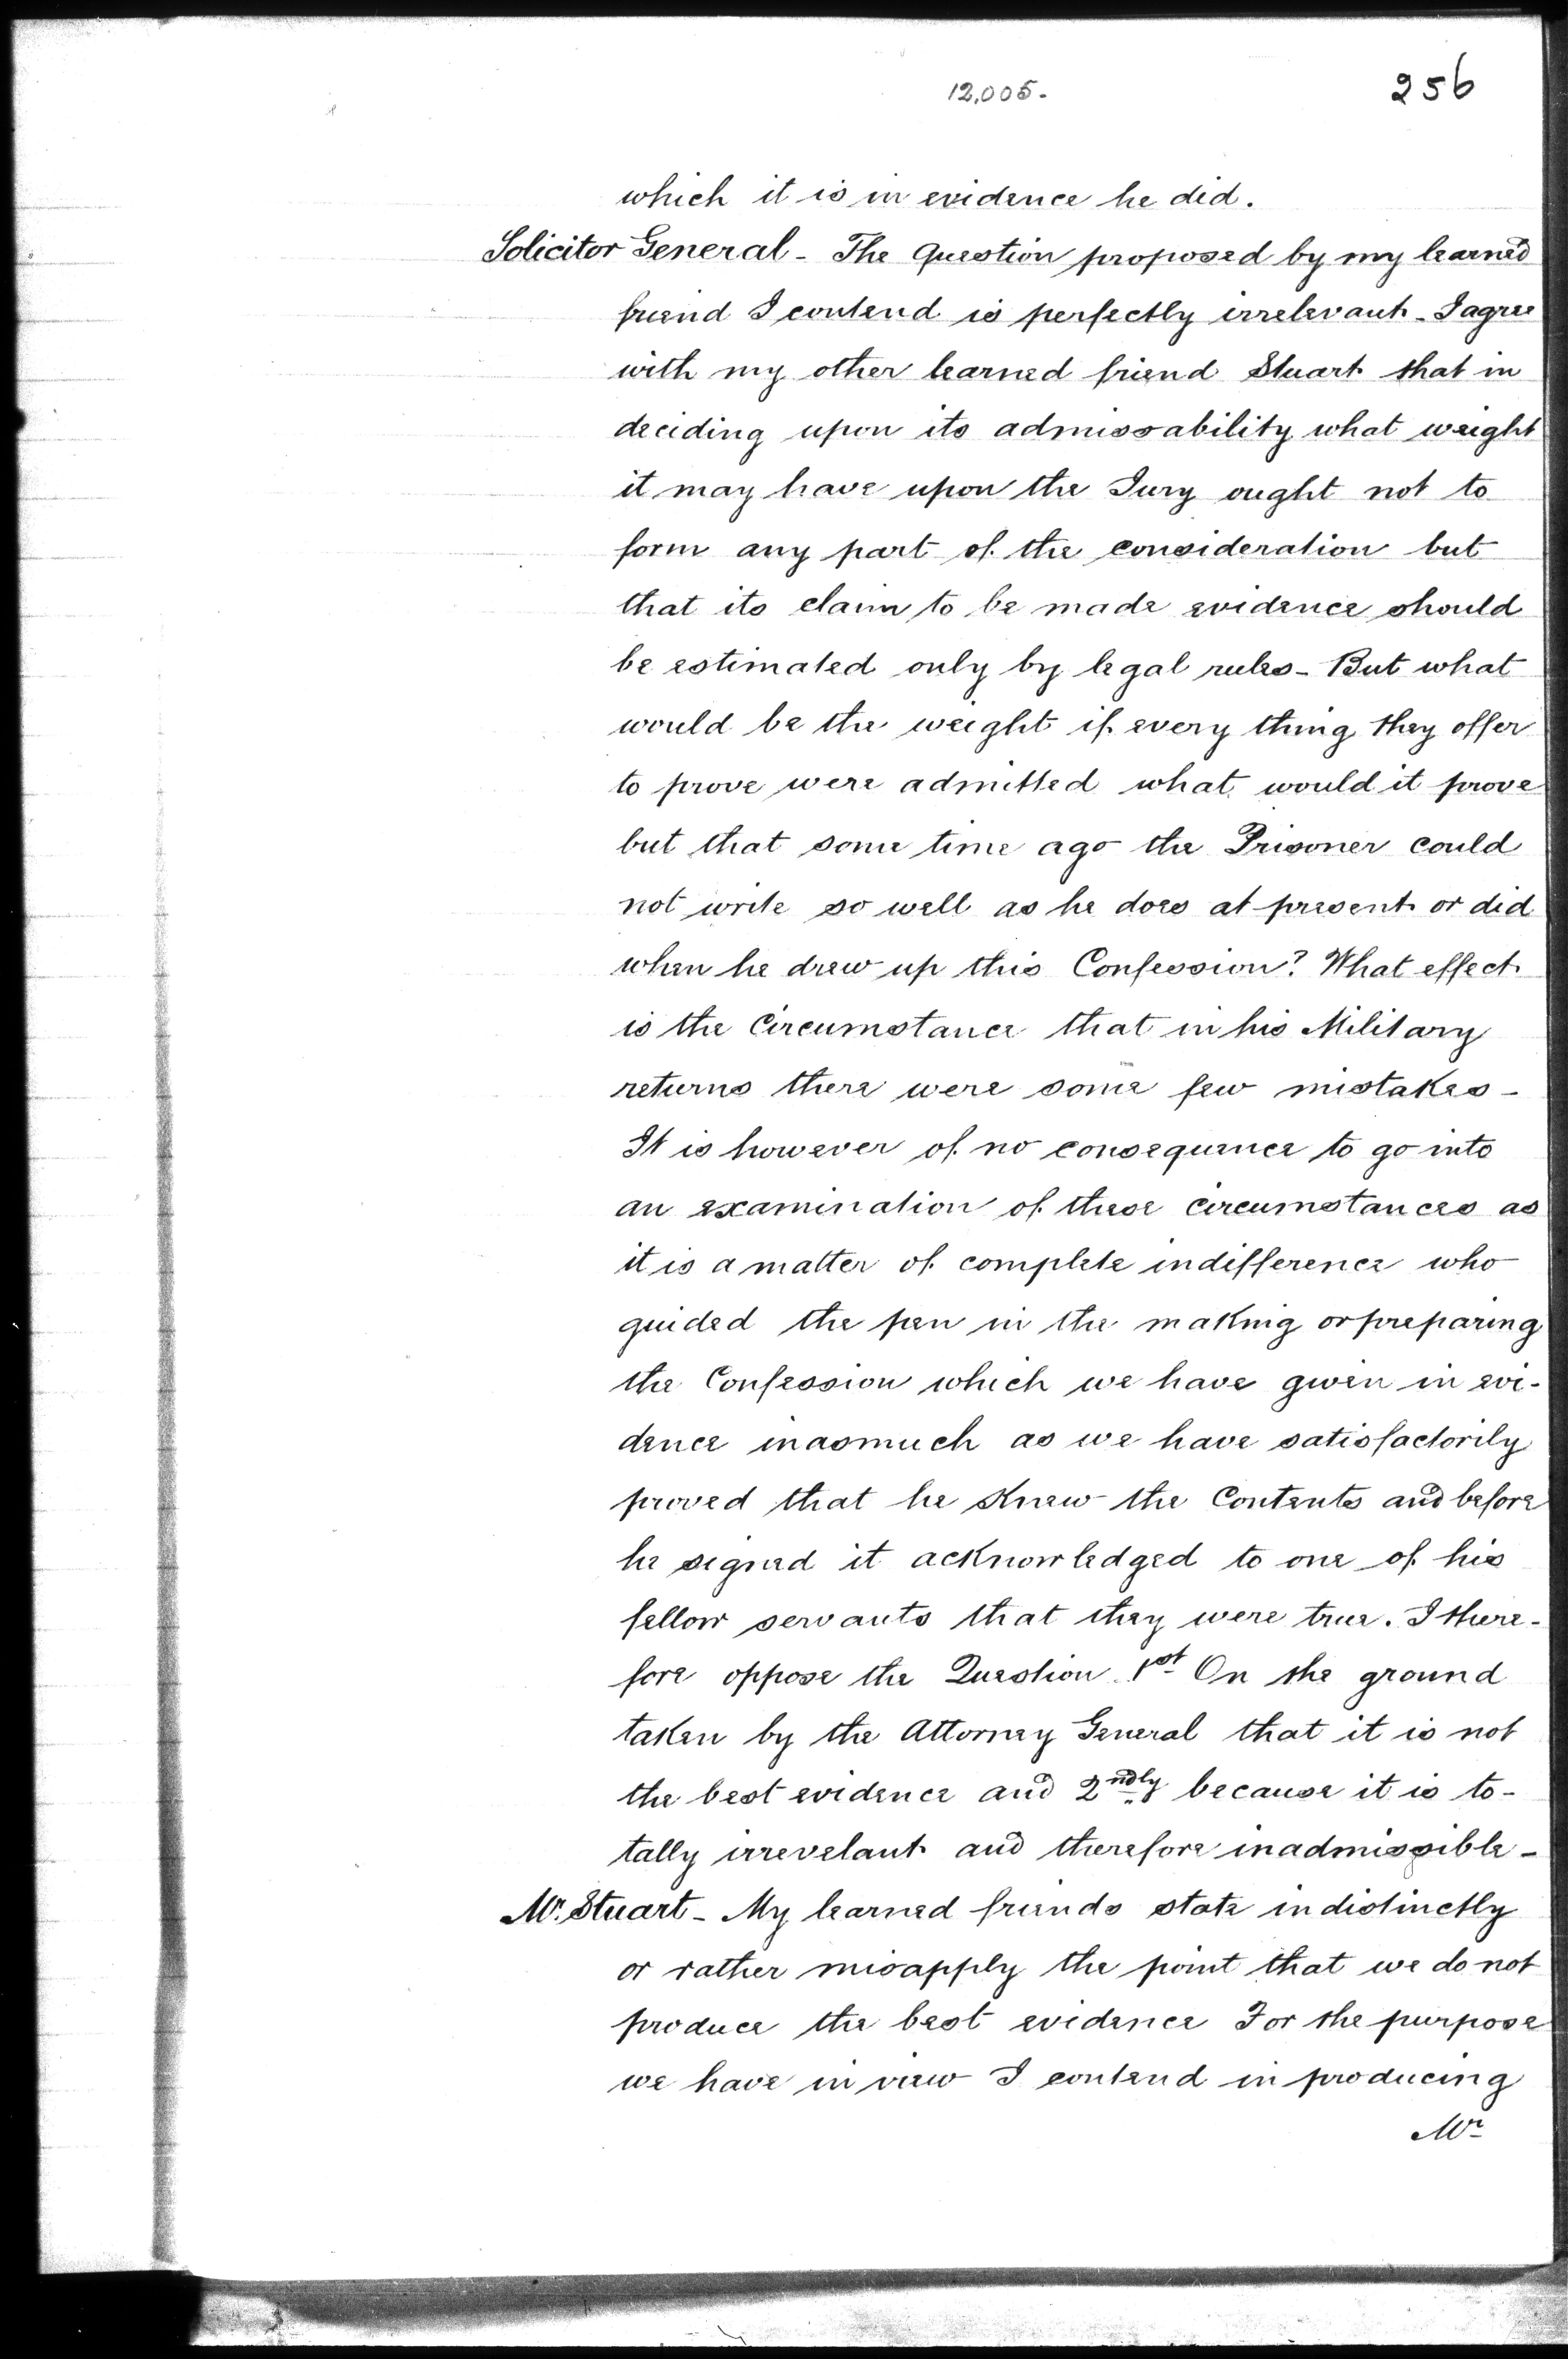 12,005.
256
which it is in evidence he did.
Solicitor General - The Question proposed by my learned
friend I contend is perfectly irrelevant - I agree
with my other learned friend Stuart that in
deciding upon its admissability what weight
it may have upon the Jury ought not to
form any part of the consideration but
that its claim to be made evidence should
be estimated only by legal rules - But what
would be the weight if every thing they offer
to prove were admitted what would it prove
but that some time ago the Prisoner could
not write so well as he does at present or did
when he drew up this Confession? What effect
is the Circumstance that in his Military
returns there were some few mistakes -
It is however of no consequence to go into
an examination of these circumstances as
it is a matter of complete indifference who
guided the pen in the making or preparing
the Confession which we have given in evi-
dence inasmuch as we have satisfactorily
proved that he knew the Contents and before
he signed it acknowledged to one of his
fellow servants that they were true. I there-
fore oppose the Question 1st On the ground
taken by the Attorney General that it is not
the best evidence and 2ndly because it is to-
tally irrevelant and therefore inadmissible -
Mr. Stuart - My learned friends state indistinctly
or rather misapply the point that we do not
produce the best evidence For the purpose
we have in view I contend in producing
Mr